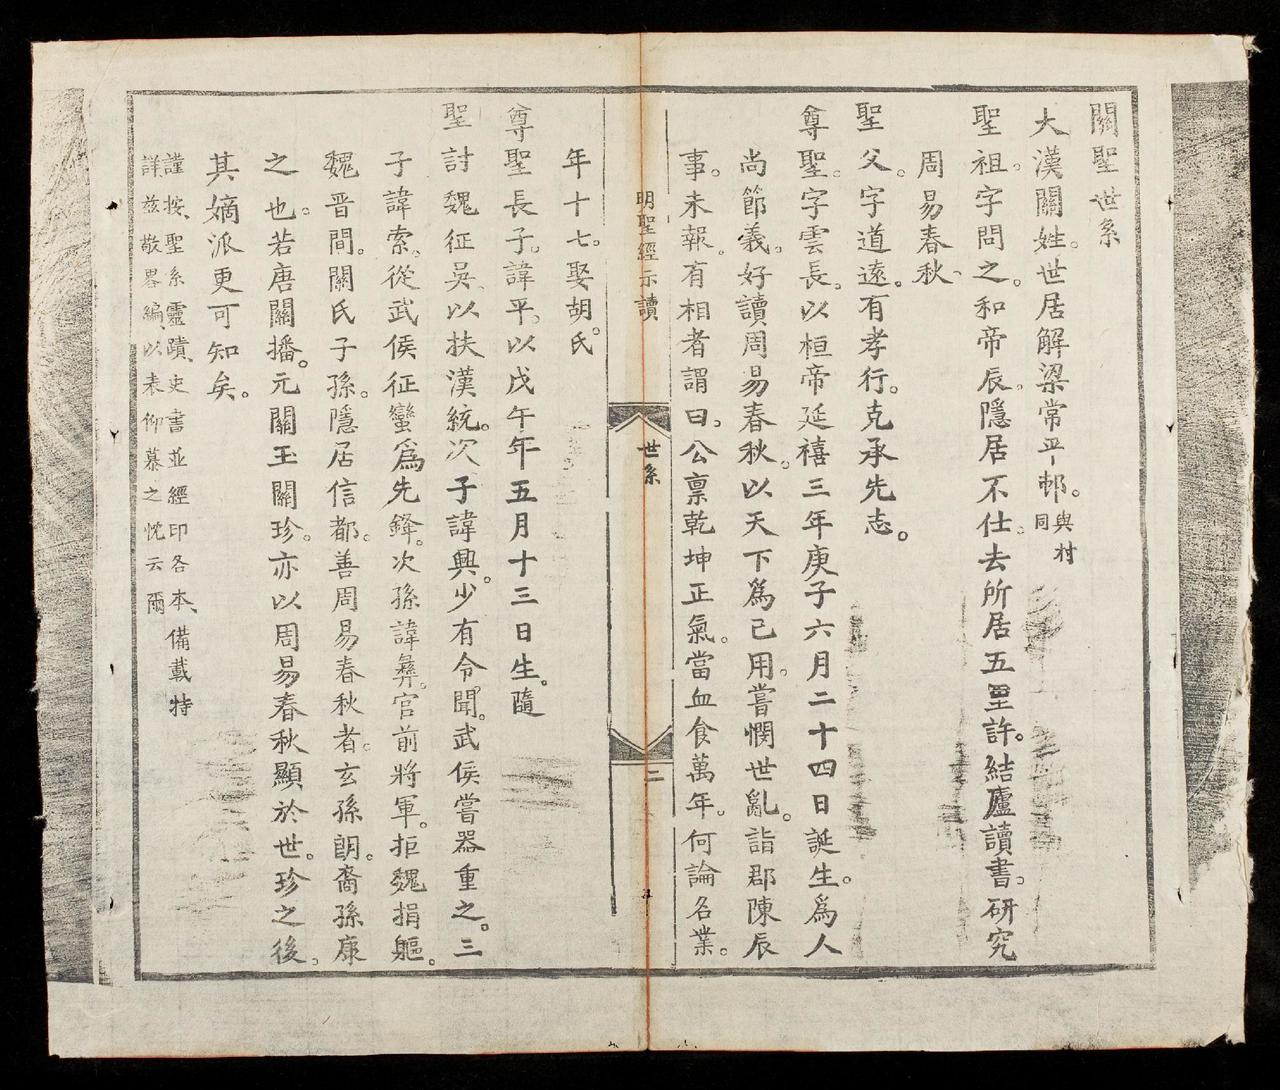 關聖世系
大漢關姓。世居解梁常平邨。與村同
聖祖。字問之。和帝辰。隱居不仕。去所居五里許。結廬讀書。研究
周易春秋、
聖父。字道遠。有孝行。克承先志。
尊聖。字雲長。以桓帝延禧三年庚子六月二十四日誕生。爲人
尚節義。好讀周易春秋。以天下爲己用。嘗憫世亂。詣郡陳辰
事。未報。有相者謂曰。公禀乾坤正氣。當血食萬年。何論名業。
明聖經示讀
世系
二
年十七。娶胡。氏
尊聖長子。諱平。以戊午年五月十三日生。隨
聖討魏征吳以扶漢統。次子諱興。少有令聞。武侯嘗器重之。三
子諱索、從武侯征蠻爲先鋒。次孫諱彝。官前將軍。拒魏捐軀。
魏晋間。關氏子孫。隱居信都。善周易春秋者。玄孫朗。裔孫康
之也。若唐關播。元關玉關珍。亦以周易春秋顯於世。珍之後。
其嫡派更可知矣。
謹按、聖系靈蹟、史書並經印各本、備載特
詳、茲敬畧編、以表仰慕之忱云爾